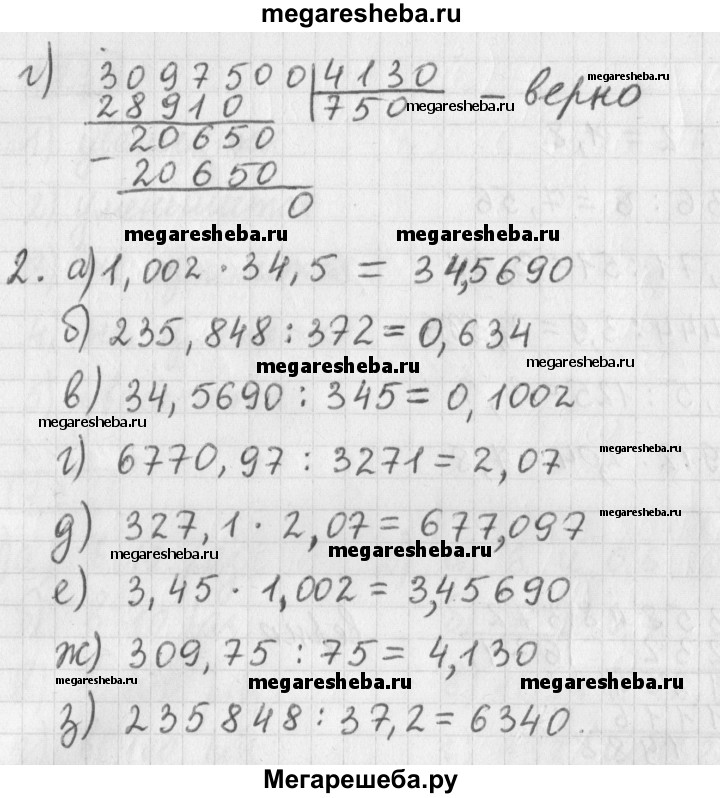 megaresheba.ru
г) 3097500 4130
28910 750 megaresheba.ru - верно megaresheba.ru
20650
- 20650
0
megaresheba.ru megaresheba.ru
2. а) 1,002 · 34,5 = 34,5690
б) 235,848 : 372 = 0,634
megaresheba.ru megaresheba.ru
в) 34,5690 : 345 = 0,1002
megaresheba.ru
г) 6770,97 : 3271 = 2,07 megaresheba.ru
д) 327,1 · 2,07 = 677,097 megaresheba.ru
megaresheba.ru megaresheba.ru
е) 3,45 · 1,002 = 3,45690
ж) 309,75 : 75 = 4,130
megaresheba.ru megaresheba.ru megaresheba.ru
з) 235848 : 37,2 = 6340.
Мегарешеба.ру